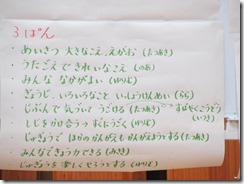 3ぱん
・あいさつ 大きなこえ、えがお(たつあき)
・うたごえ できれいなこえ(のあ)
・みんな なかがよい(ゆりと)
・ぎょうじ、いろいろなこと いっしょうけんめい(るる)
・じぶんで 気づいて うごける(たつあき)→すばやくこうどう(いつき)
・しじをかけ合う→すぐにうごく(ゆりと)
・じゅぎょうで ほかの かんがえも かんがえようとする(たつあき)
・みんなできょうかできる(みさき)
・じゅぎょうを 楽しく やろうとする(ゆりと)